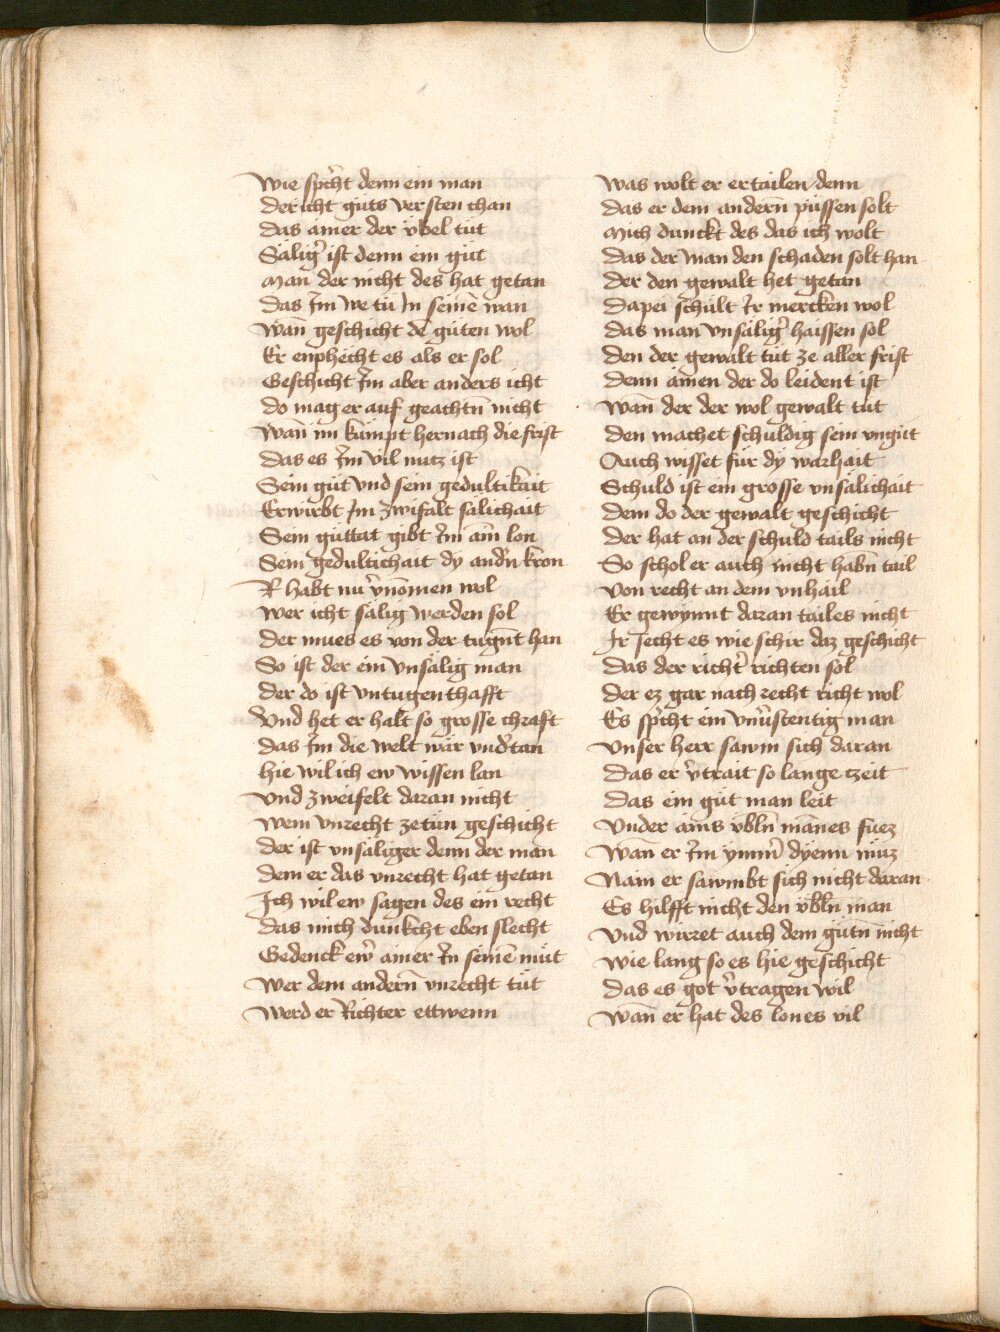 Wie sp̄cht denn ein man
der icht guts versten chan
das ainer der v̈bel tüt
Sälig' ist denn ein güt
Man der nicht des hat getan
das Jm we tü Jn seinē wan
Wañ geschicht dē güten wol
Er enphecht es als er sol
Geschicht Jm aber anders icht
do mag er auf geachtñ nicht
Wañ im kümpt hernach die frist
das es Jm vil nutz ist
Sein güt vnd sein gedultikait
Erwirbt Jm zwifalt sälichait
Sein güttat gibt Jm ain̄ lon
Sein gedultichait dy and'n kron
R habt nu v'nomen wol
Wer icht sälig werden sol
Der mues es von der tugñt han
So ist der ein vnsälig man
der do ist vntugenthafft
Vnd het er halt so grosse chraft
das Jm die welt wär vnd'tan
hie wil ich ew wissen lan
Vnd zweifelt daran nicht
Wem vnrecht zetün geschicht
der ist vnsäliger denn der man
dem er das vnrecht hat getan
Ich wil ew sagen des ein recht
das mich dünkcht eben slecht
Gedenck ew' ainer Jn seinē müt
Wer dem anderñ vnrecht tüt
Werd er Richter ettwenn
Was wolt er ertailen denn
Das er dem anderñ püssen solt
Mich dunckt des das ich wolt
Das der man den schaden solt han
Der den gewalt het getan
Dapei schült Jr mercken wol
das man vnsälig' haissen sol
Den der gewalt tüt ze aller frist
denn ainen der do leident ist
Wañ der der wol gewalt tüt
den machet schuldig sein vngüt
Auch wisset für dy warhait
Schuld ist ein grosse vnsälichait
Dem do der gewalt geschicht
Der hat an der schuld tails nicht
So schol er auch nicht habñ tail
Von recht an dem vnhail
Er gewynnt daran tailes nicht
Jr secht es wie schir daz geschicht
das der richt' richten sol
Der ez gar nach recht richt wol
Es sp̄cht ein vnv'stentig man
Vnser herr sawm sich daran
Das er v'trait so lange czeit
Das ein güt man leit
Vnder ains v̈blñ mānes fuez
Wañ er Jm ymm' dyenn müz
Nain er sawmbt sich nicht daran
Es hilfft nicht den v̈blñ man
Vnd wirret auch dem gütñ nicht
Wie lang so es hie geschicht
Das es got v'tragen wil
Wañ er hat des lones vil